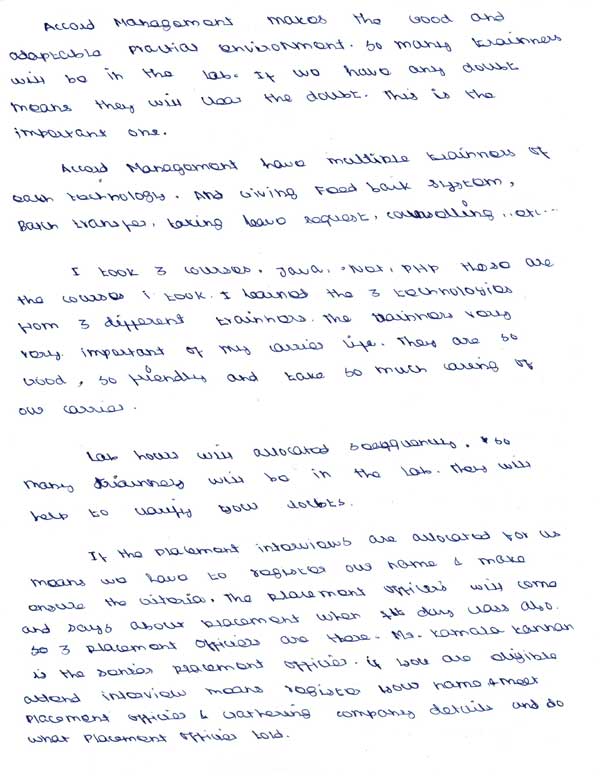 Accord Management makes the Good and
adaptable practial environment. so many trainners
will be in the lab. If we have any doubt
means they will clear the doubt. This is the
important one.
Accord Management have multiple trainners of
each technology. And Giving Feed back system,
Batch transfer, taking leave request, counselling, .etc...
I took 3 courses. Java, .Net, PHP these are
the courses i took. I learned the 3 technologies
from 3 different trainners. The trainners very
very important of my carrier life. They are so
Good, so friendly and take so much caring of
our carrier.
Lab hour will allocated so many
many trainners will be in the lab. they will
help to clarify your doubts.
If the placement interviews are allocated for us
means we have to register our name & make
ensure the criteria. The placement officers will come
and says about placement when 1st day class also.
So 3 placement officers are there. Mr. Kamala Kannan
is the senior placement officer. if you are eligible
attend interview means register your name & meet
placement officer & Gathering company details and do
what placement officer told.